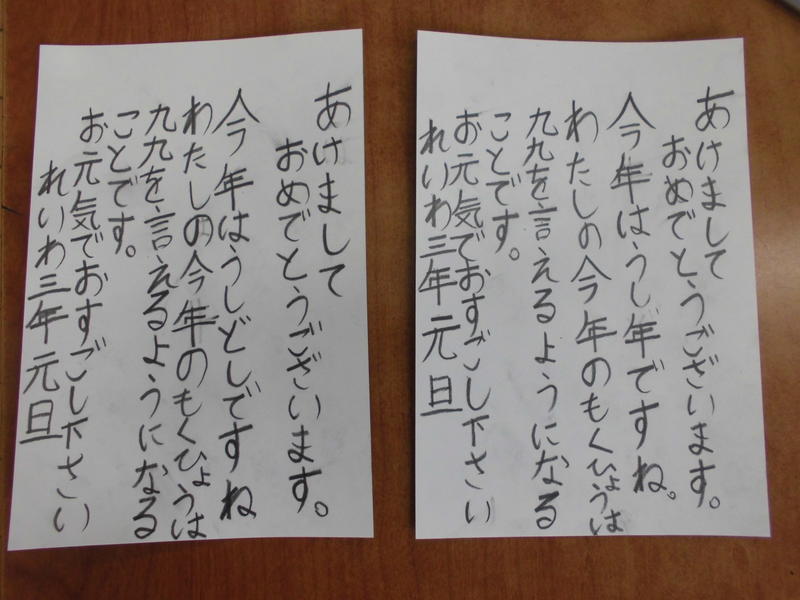 あけまして
おめでとうございます。
今年はうしどしですね
わたしの今年のもくひょうは
九九を言えるようになる
ことです。
お元気でおすごし下さい
れいわ三年元旦
あけまして
おめでとうございます。
今年はうし年ですね。
わたしの今年のもくひょうは
九九を言えるようになる
ことです。
お元気でおすごし下さい
れいわ三年元旦